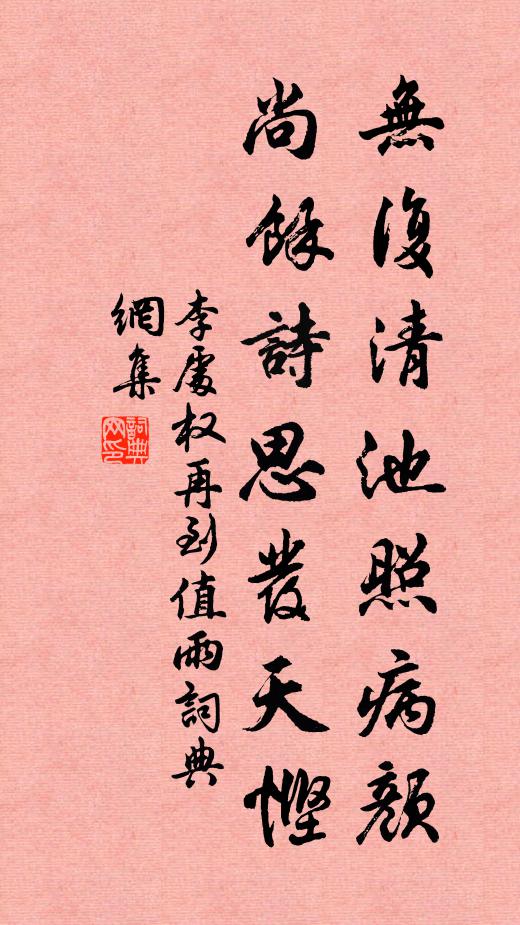 無復清池照病顔
尚餘詩思發天慳
李處权再到值雨詞典
網集
詞典
网印